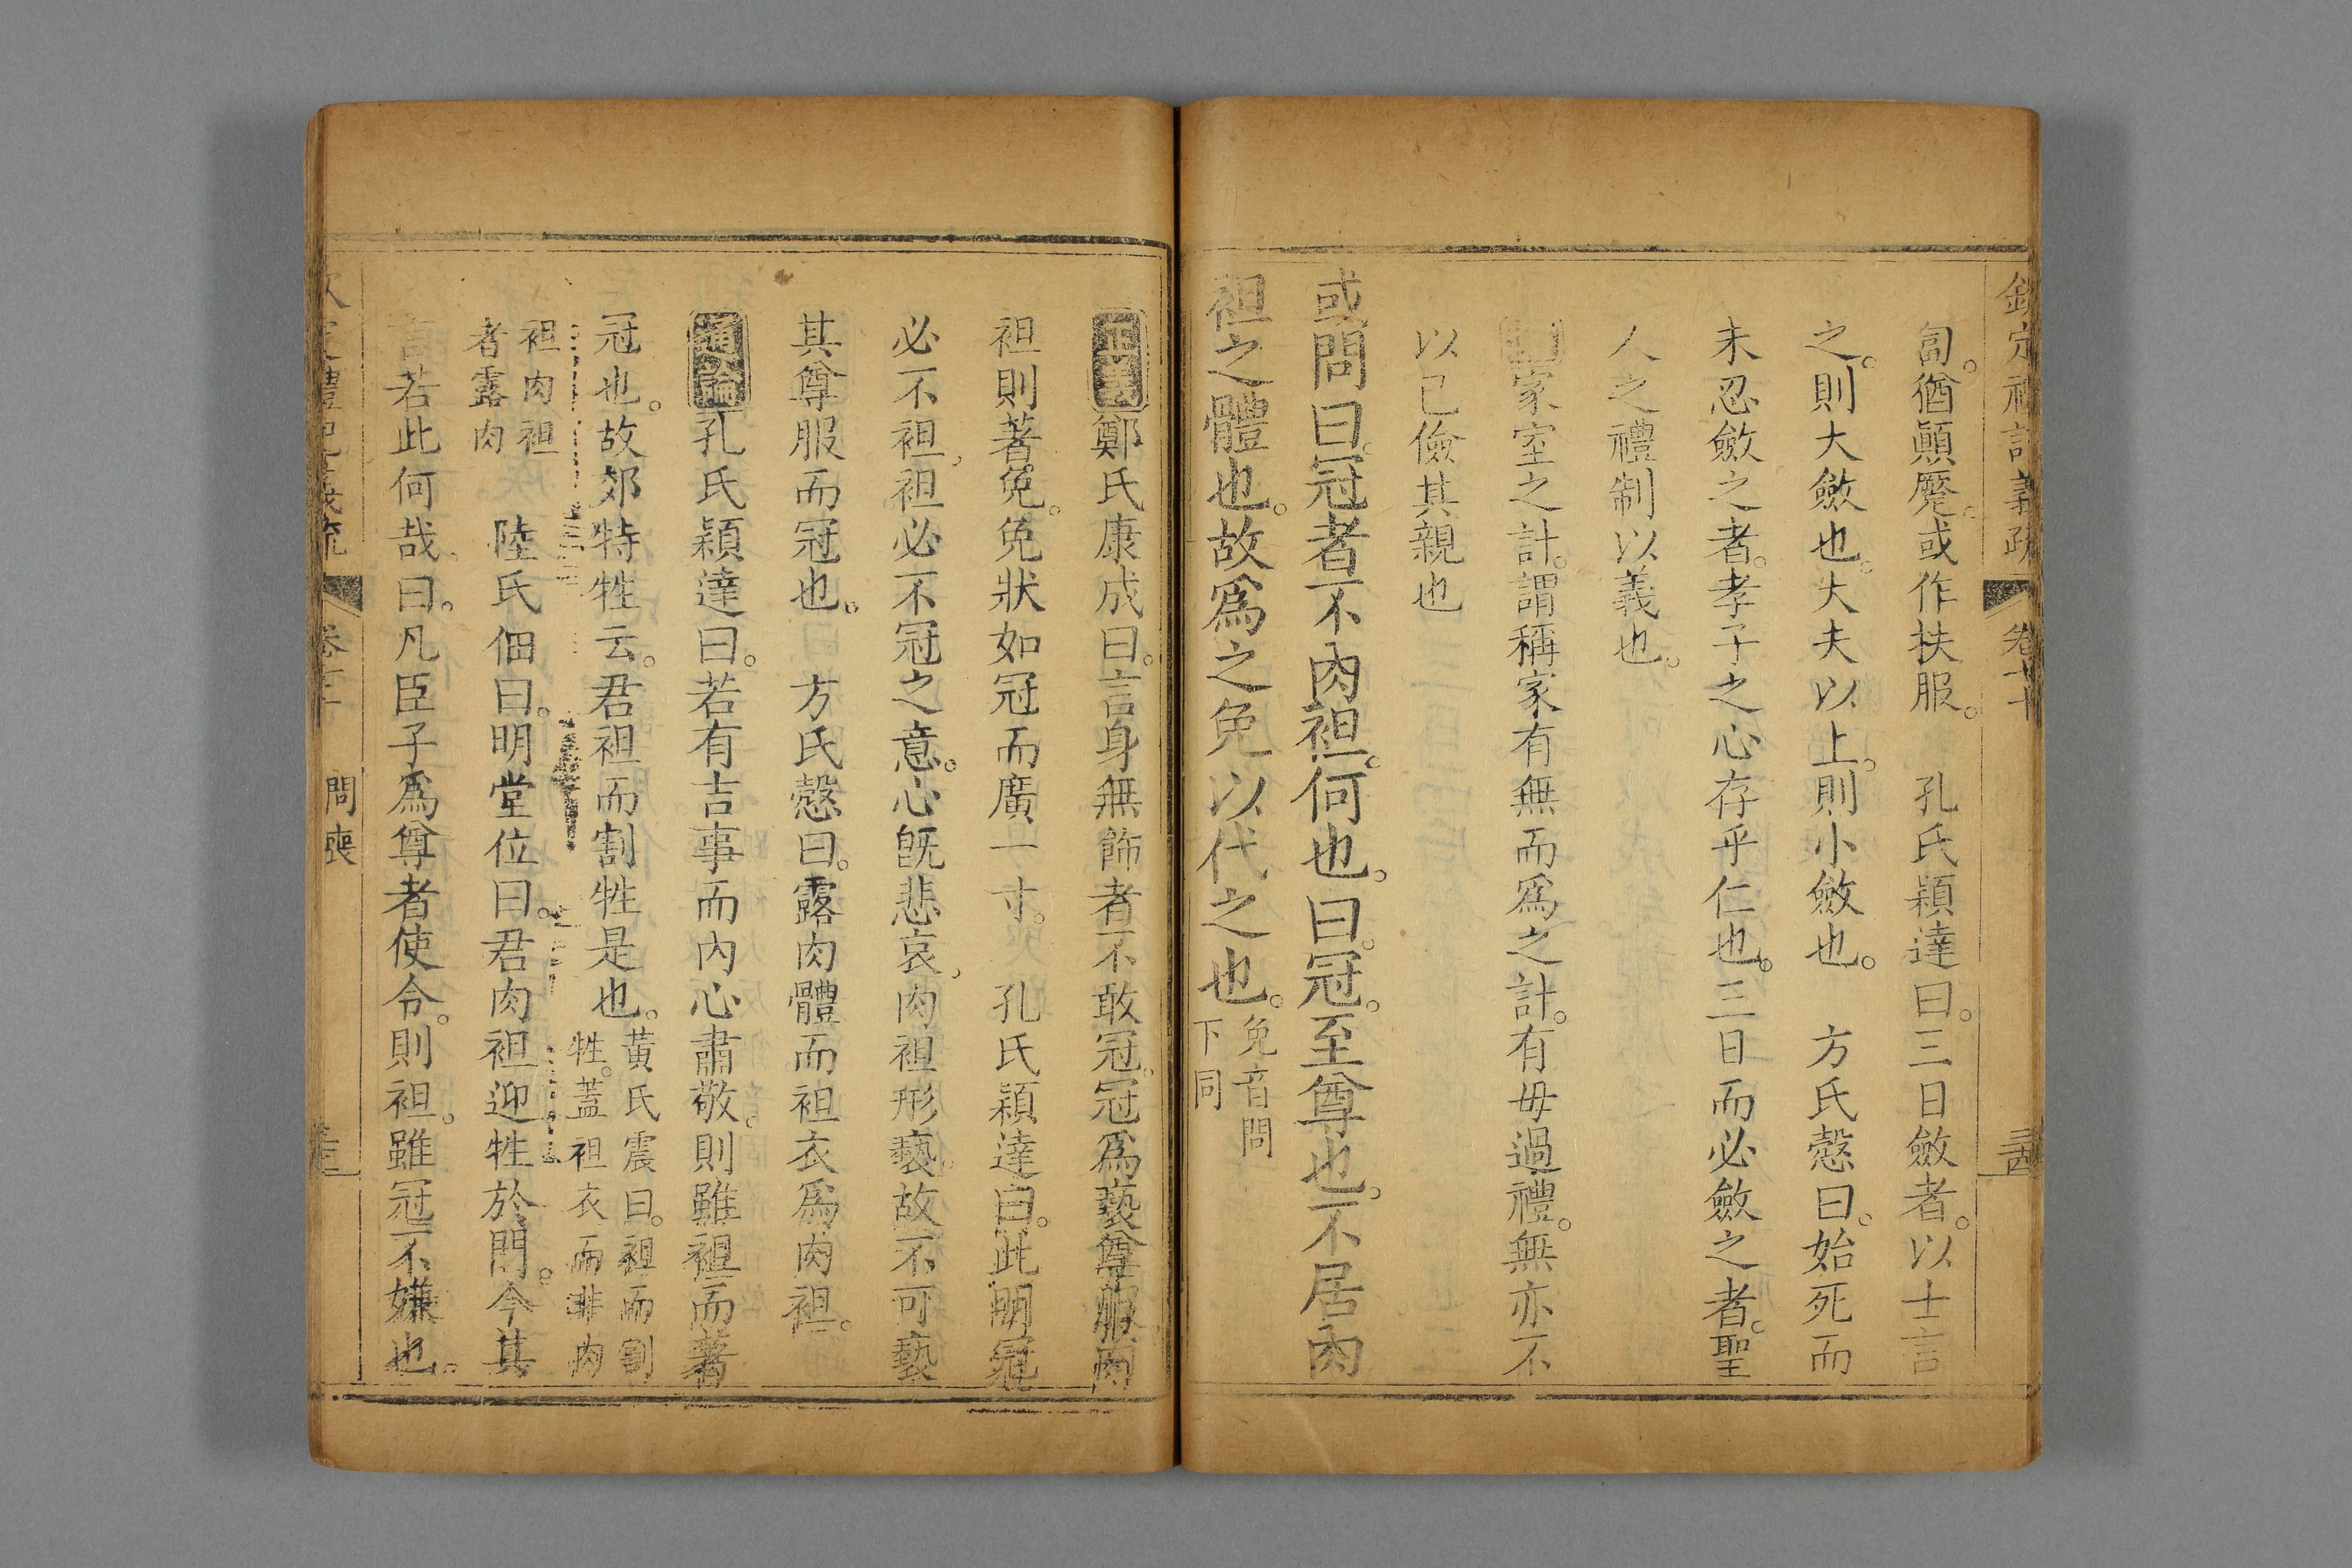 欽定禮記義疏 卷七十 三四
匐。猶顚蹷。或作扶服。 孔氏穎達曰。三日斂者。以士言
之。則大斂也。大夫以上。則小斂也。 方氏慤曰。始死而
未忍斂之者。孝子之心存乎仁也。三日而必斂之者。聖
人之禮制以義也。
家室之計。謂稱家有無而爲之計。有毋過禮。無亦不
以己儉其親也
或問曰。冠者不肉袒。何也。曰。冠。至尊也。不居肉
袒之體也。故爲之免以代之也。免音問下同
正義鄭氏康成曰。言身無飾者不敢冠。冠爲褻尊服。肉
袒則著免。免狀如冠而廣一寸。 孔氏穎達曰。此明冠
必不袒。袒必不冠之意。心旣悲哀。肉袒形褻。故不可褻
其尊服而冠也。 方氏慤曰。露肉體而袒衣爲肉袒。
通論孔氏穎達曰。若有吉事而內心肅敬。則雖袒而著
冠也。故郊特牲云。君袒而割牲是也。黃氏震曰。袒而割牲。蓋袒衣而非肉
袒肉袒者露肉 陸氏佃曰。明堂位曰。君肉袒迎牲於門。今其
言若此何哉。曰。凡臣子爲尊者使令。則袒。雖冠不嫌也。
定禮記義疏 卷七十 問喪